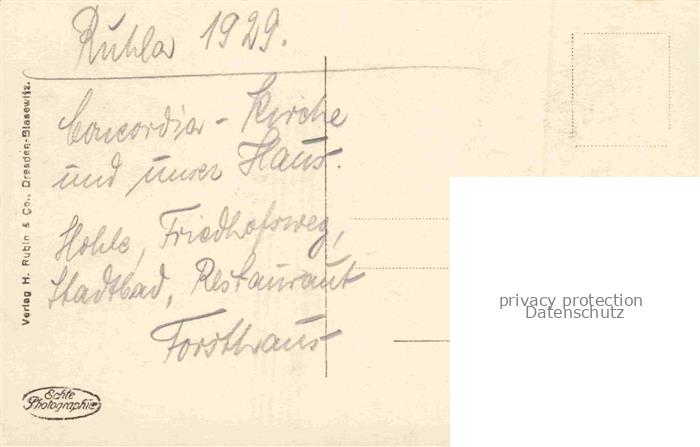 Ruhla 1929.
Concordia-Kirche
und unser Haus.
Hohle, Friedhofsweg,
Stadtbad, Restaurant
Forsthaus
Verlag H. Rubin & Co., Dresden-Blasewitz.
Echte
Photographie
privacy protection
Datenschutz